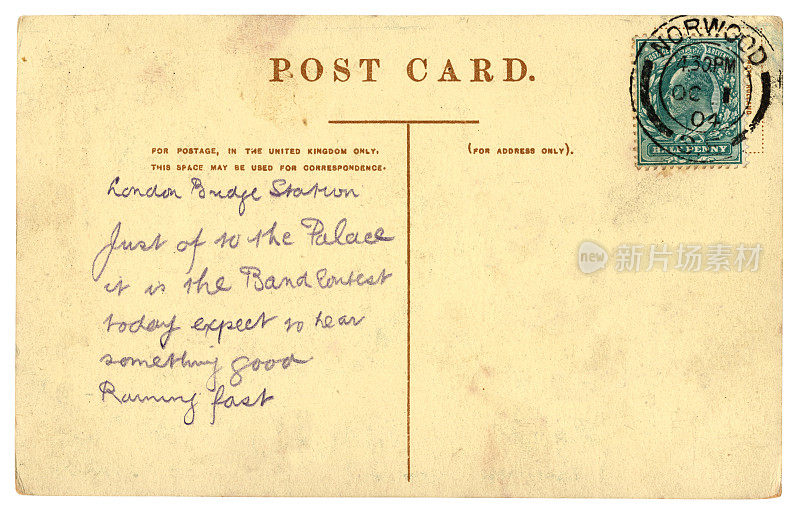 POST CARD.
FOR POSTAGE, IN THE UNITED KINGDOM ONLY,
THIS SPACE MAY BE USED FOR CORRESPONDENCE.
(FOR ADDRESS ONLY).
NORWOOD
4.30PM
OC 1
04
HALF PENNY
London Bridge Station
Just of to the Palace
it is the Band Contest
today expect to hear
something good
Raining fast
new 新片场素材